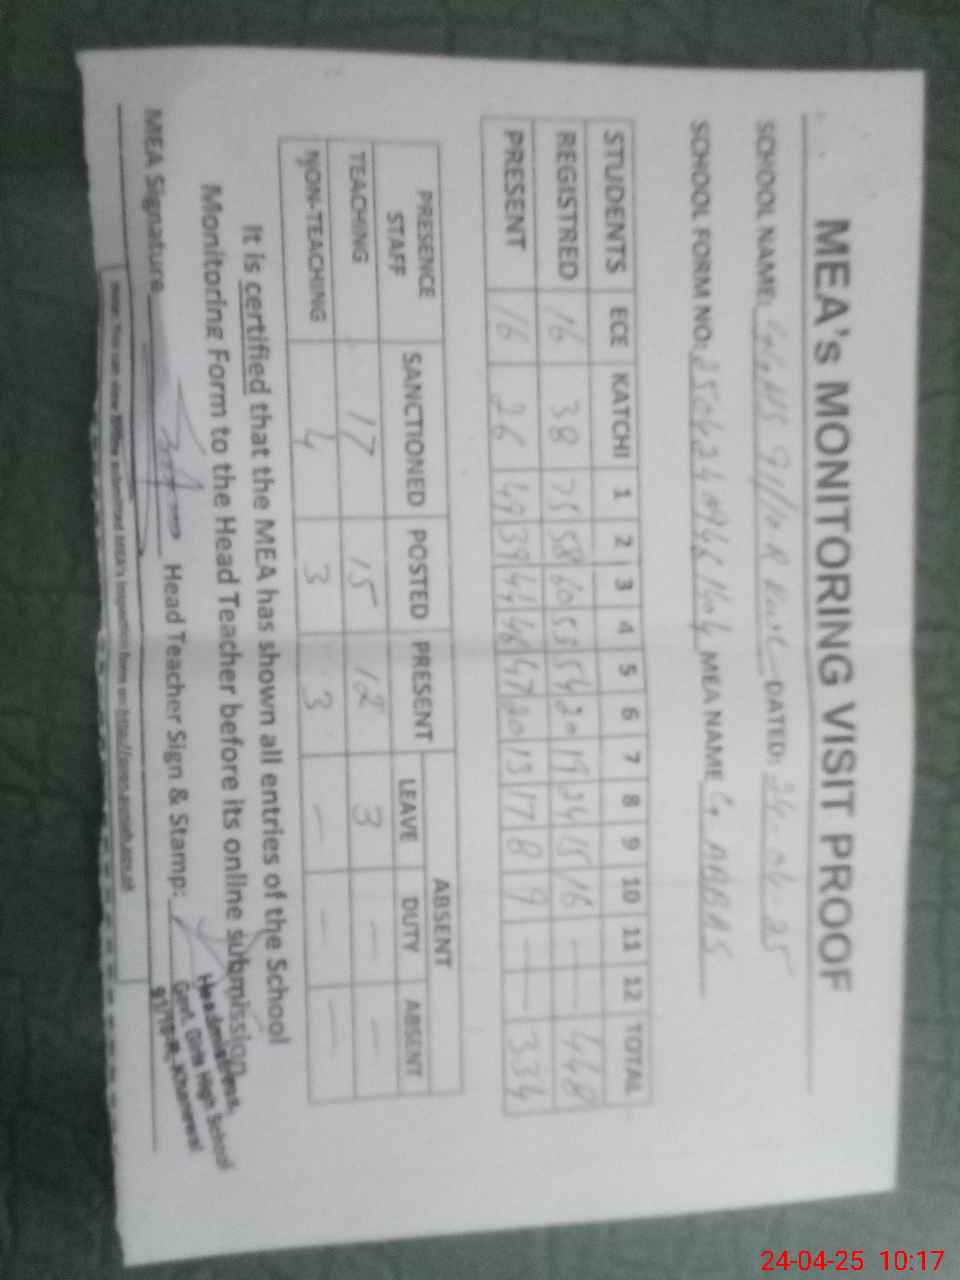 MEA's MONITORING VISIT PROOF
SCHOOL NAME: GGHS 91/10R DATED: 24-04-25
SCHOOL FORM NO: MEA NAME G. ABBAS
STUDENTS ECE KATCHI 1 2 3 4 5 6 7 8 9 10 11 12 TOTAL
REGISTRED 16 38 75 58 60 53 54 20 19 24 15 16 — — 448
PRESENT 16 26 49 39 44 46 47 20 13 17 8 9 — — 334
PRESENCE STAFF SANCTIONED POSTED PRESENT ABSENT
LEAVE DUTY ABSENT
TEACHING 17 15 12 3 — —
NON-TEACHING 4 3 3 — — —
It is certified that the MEA has shown all entries of the School
Monitoring Form to the Head Teacher before its online submission.
MEA Signature Head Teacher Sign & Stamp:
Headmistress,
Govt. Girls High School
91/10-R, Khanewal
24-04-25 10:17